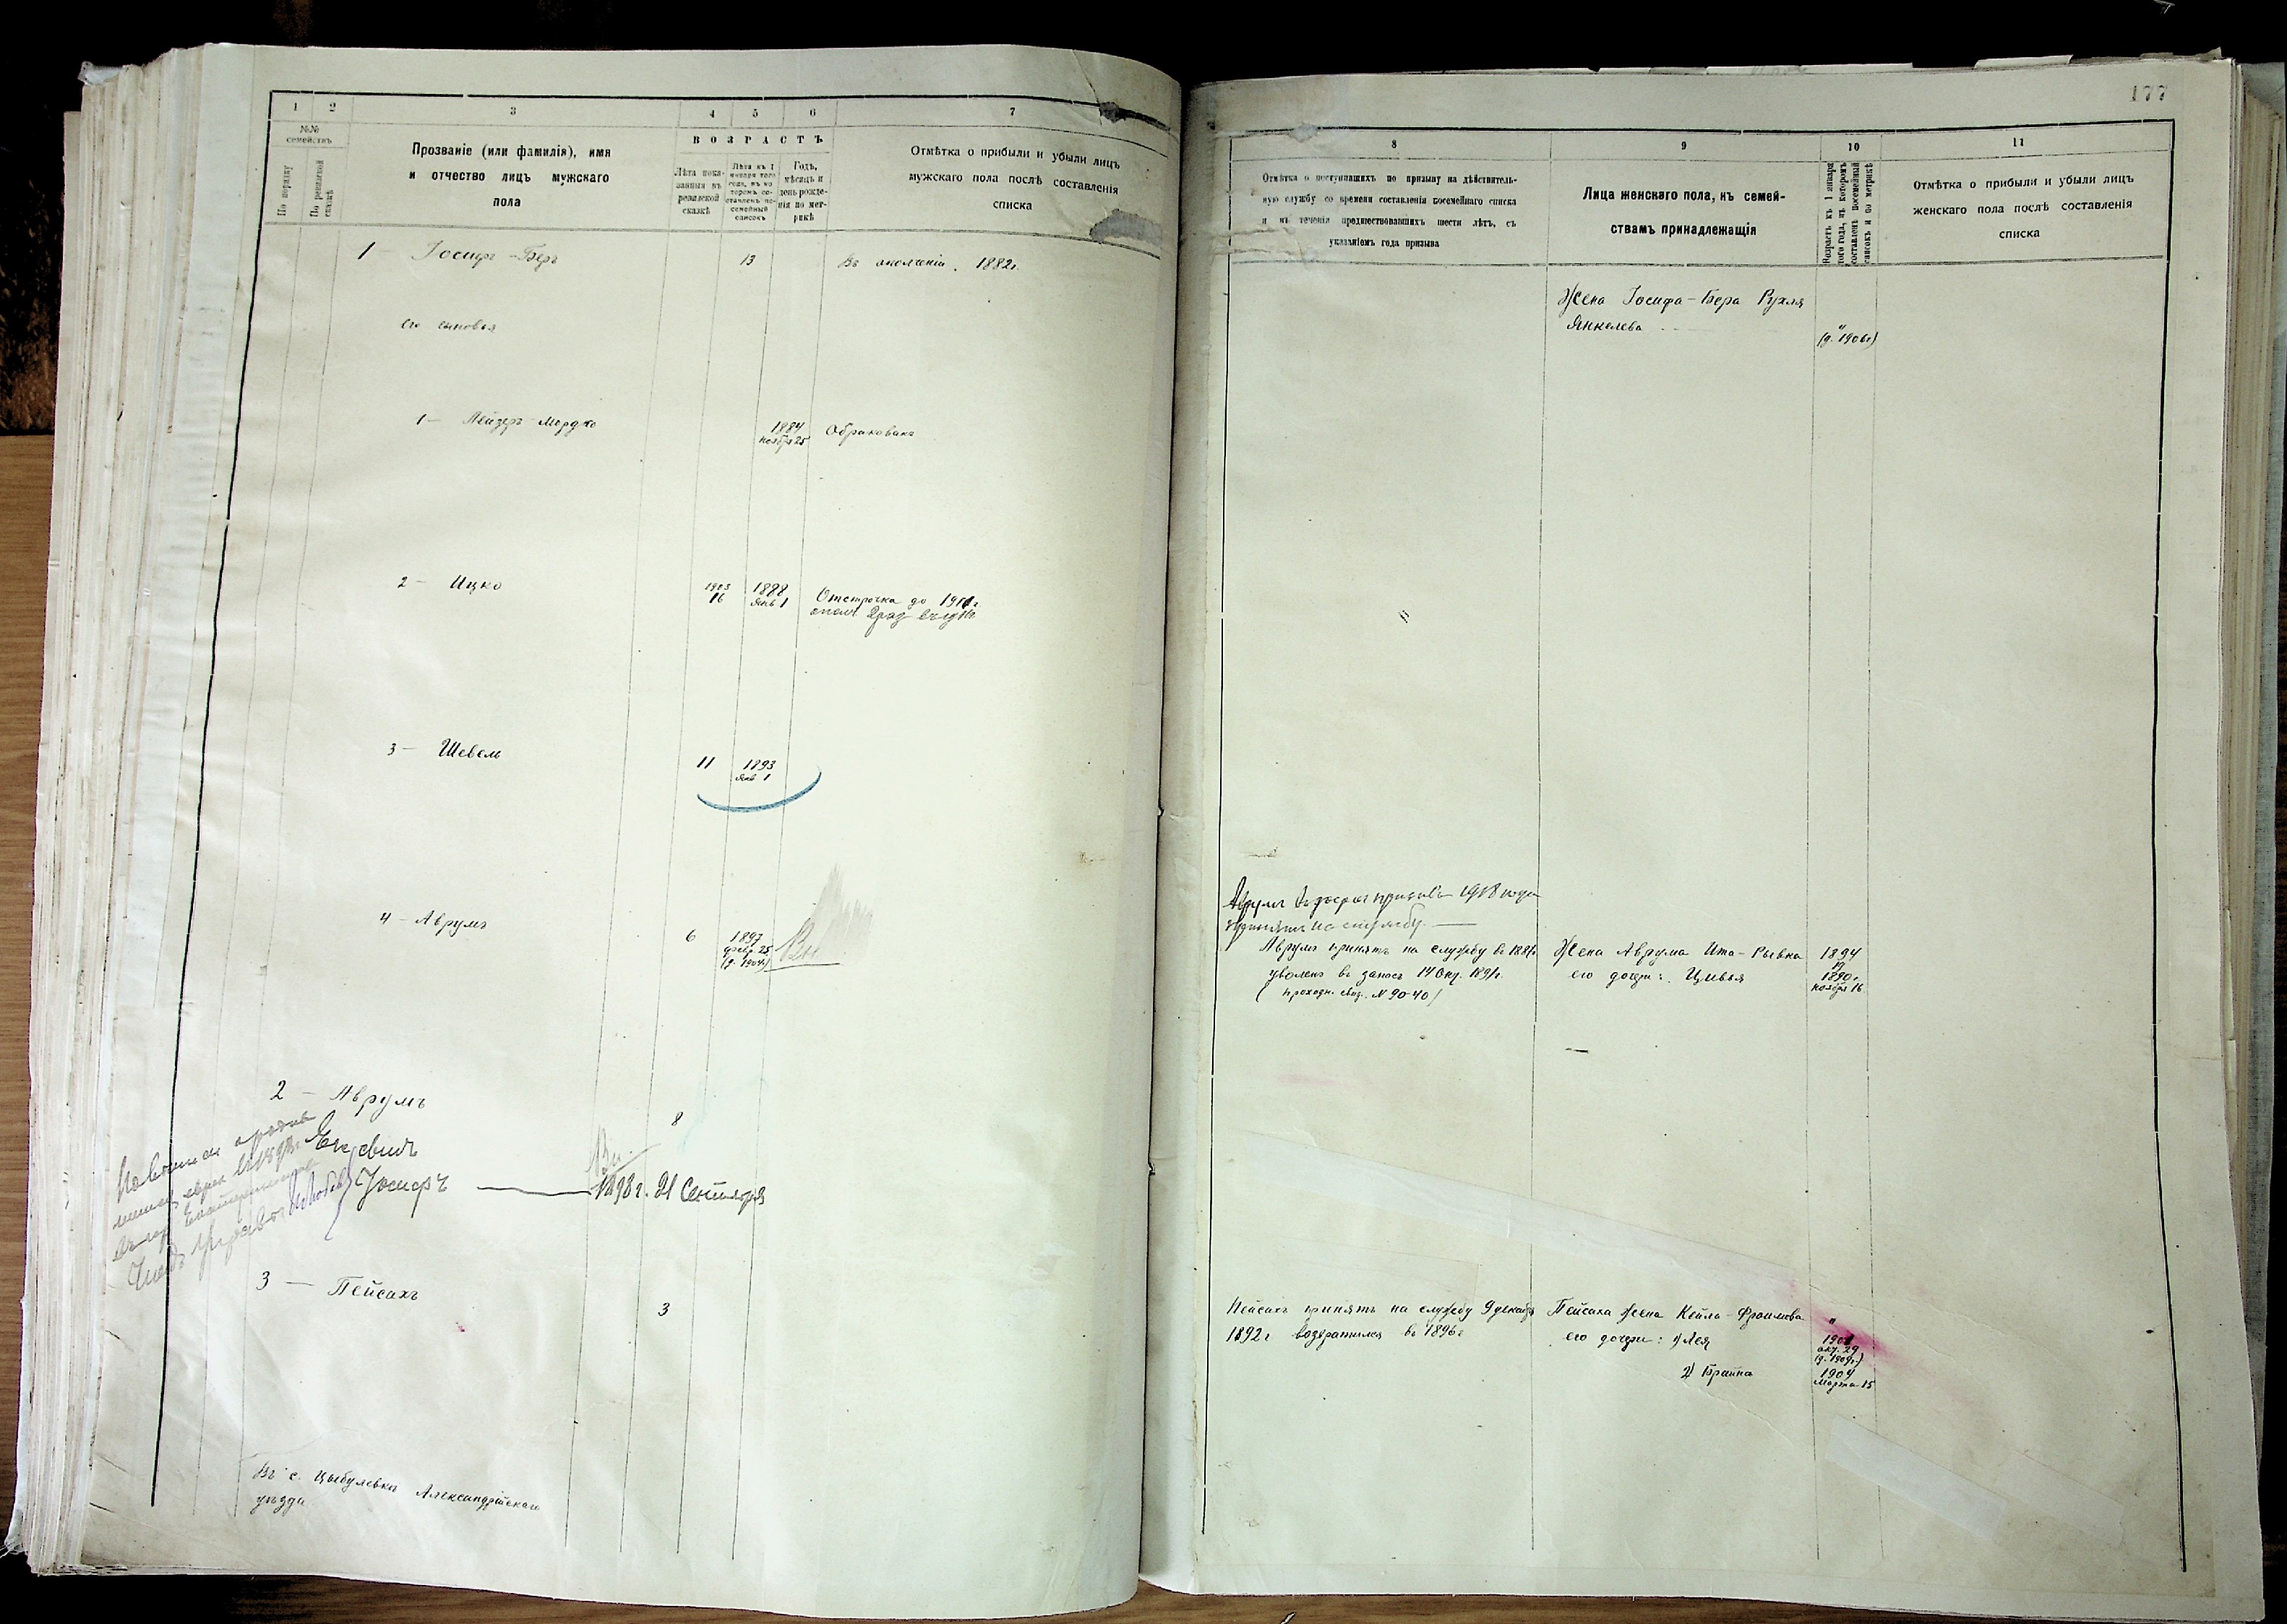 1
2
3
4
5
6
7
№№ семействъ
По порядку
По ревизской сказкѣ
Прозваніе (или фамилія), имя
и отчество лицъ мужскаго
пола
ВОЗРАСТЪ
Лѣта пока-
занныя въ
ревизской
сказкѣ
Лѣта къ 1
января того
года, въ ко
торомъ со-
ставленъ по-
семейный
списокъ
Годъ,
мѣсяцъ и
день рожде-
нія по мет-
рикѣ
Отмѣтка о прибыли и убыли лицъ
мужскаго пола послѣ составленія
списка
1 – Іосифъ-Беръ
13
Въ ополченіи. 1882г.
его сыновья
1 – Лейзеръ-Мордко
1884
ноября 25
Обракованъ
2 – Ицко
1903
16
1888
Янв 1
Отсрочка до 1911г.
3 – Шевель
11
1893
Янв 1
4 – Аврумъ
6
1897
февр 25
(д. 1904г)
2 – Аврумъ
8
Іосифъ
1898 г. 21 Сентября
3 – Пейсахъ
3
Въ с. Цыбулевкѣ Александрійскаго
уѣзда
177
8
9
10
11
Отмѣтка о поступившихъ по призыву на дѣйствитель-
ную службу со времени составленія посемейнаго списка
и въ теченіи предшествовавшихъ шести лѣтъ, съ
указаніемъ года призыва
Лица женскаго пола, къ семей-
ствамъ принадлежащія
Возрастъ къ 1 января
того года, въ которомъ
составленъ посемейный
списокъ и по метрикѣ
Отмѣтка о прибыли и убыли лицъ
женскаго пола послѣ составленія
списка
Жена Іосифа-Бера Рухля
Янкелева
"
(д. 1906г)
Аврумъ призыва 1918 года
принятъ на службу
Аврумъ принятъ на службу въ 1887г.
уволенъ въ запасъ 14 Окт. 1891г.
(проходн. свид. № 90-40)
Жена Аврума Ита-Рывка
1894
19
его дочери: Цивья
1890г.
ноября 16
Пейсахъ принятъ на службу 9 декабря
1892г возвратился въ 1896г
Пейсаха жена Кейла-Фроимова
"
его дочери: 1) Лея
1901
окт. 29
(д. 1909г.)
2) Брайна
1904
Марта 15